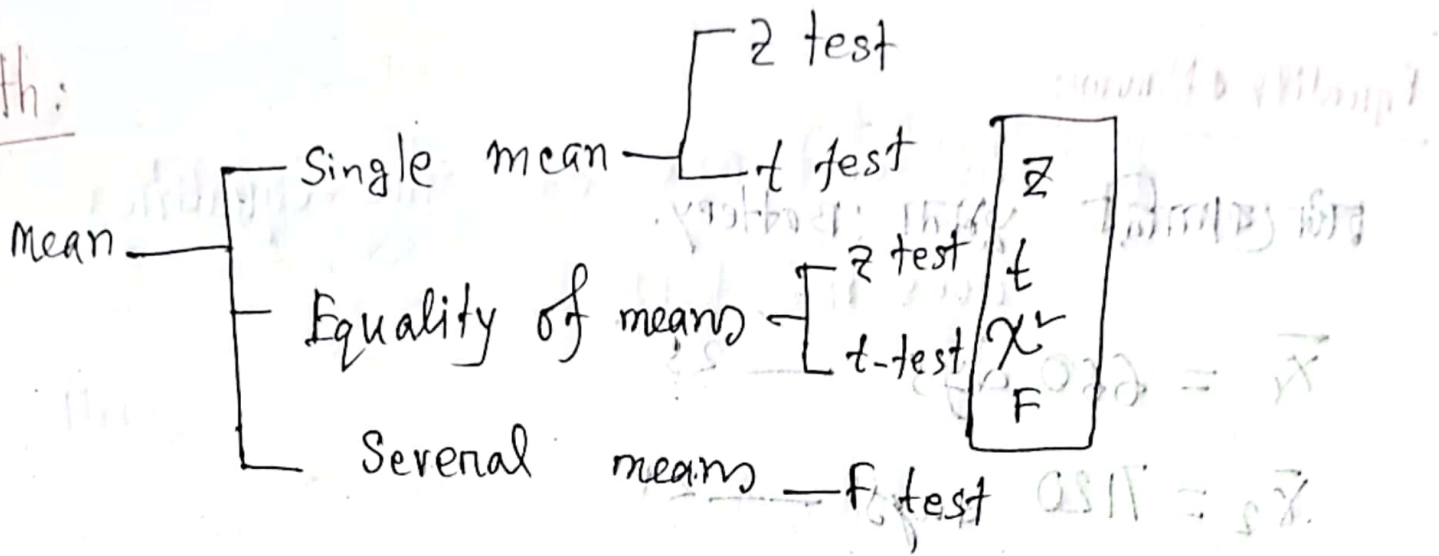 th:
z test
Single mean
t test
mean
Equality of means
z test
t-test
Several means
F test
Z
t
χ²
F